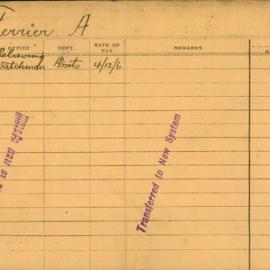 Ferrier. A
OFFICE DEPT. RATE OF PAY REMARKS
Relieving
Watchman 4/12/6
Transferred to New System